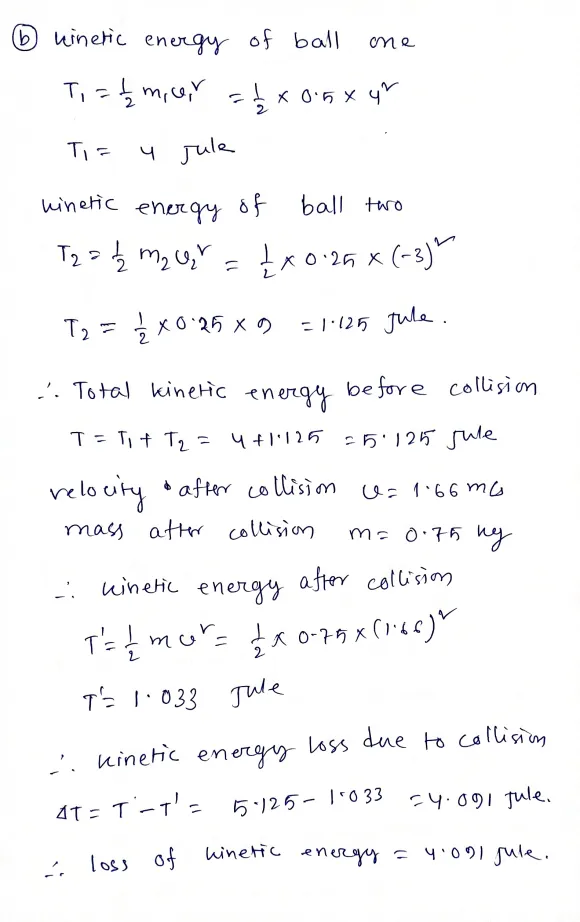 ⓑ kinetic energy of ball one
T₁ = ½ m₁v₁² = ½ × 0.5 × 4²
T₁ = 4 Jule
kinetic energy of ball two
T₂ = ½ m₂v₂² = ½ × 0.25 × (-3)²
T₂ = ½ × 0.25 × 9 = 1.125 Jule.
∴ Total kinetic energy before collision
T = T₁ + T₂ = 4+1.125 = 5.125 Jule
velocity after collision v = 1.66 m/s
mass after collision m = 0.75 kg
∴ kinetic energy after collision
T' = ½ mv² = ½ × 0.75 × (1.66)²
T' = 1.033 Jule
∴ kinetic energy loss due to collision
ΔT = T - T' = 5.125 - 1.033 = 4.091 Jule.
∴ loss of kinetic energy = 4.091 Jule.